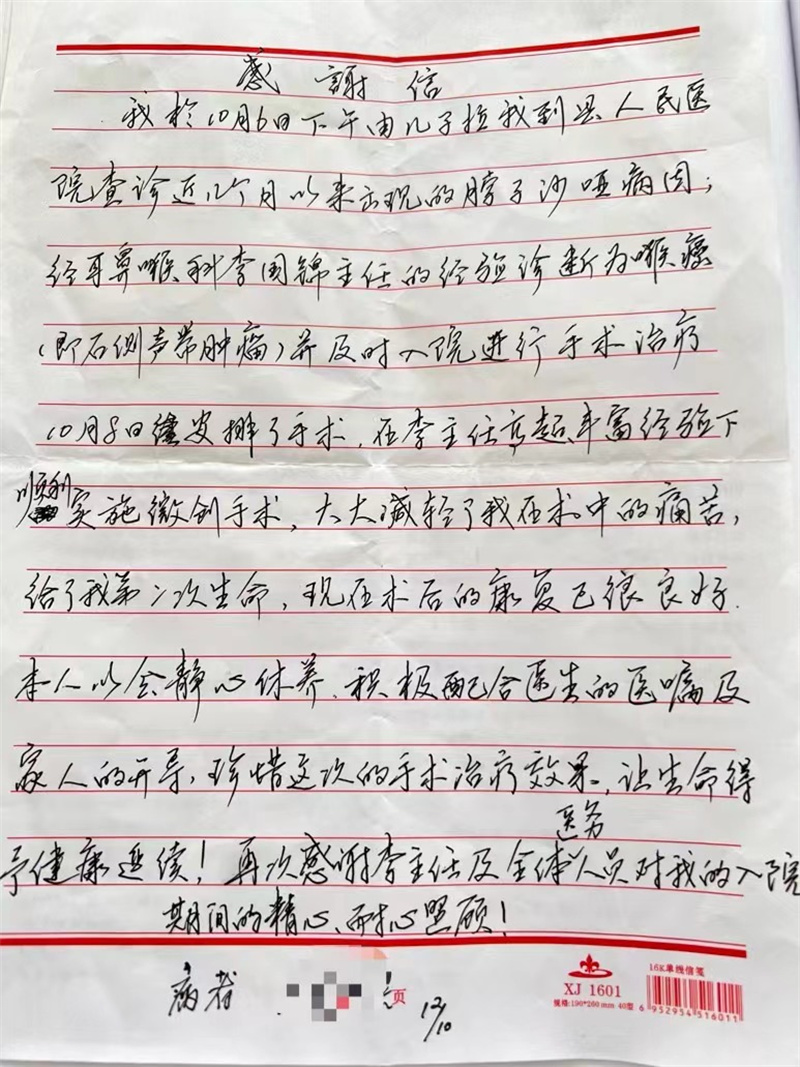 感 謝 信
我於10月6日下午由儿子拉我到县人民医
院查诊近几个月以来出现的脖子沙哑病因;
经耳鼻喉科李国锦主任的经验诊断为喉癌
(即右侧声带肿瘤)并及时入院进行手术治疗
10月8日安排了手术,在李主任高超、丰富经验下
顺利实施微创手术,大大减轻了我在术中的痛苦,
给了我第二次生命,现在术后的康复已很良好.
本人以会静心休养、积极配合医生的医嘱及
家人的开导,珍惜这次的手术治疗效果,让生命得
予健康延续!再次感谢李主任及全体医务人员对我的入院
期间的精心、耐心照顾!
病者
页
12/10
XJ 1601
16K单线信笺
规格:190*260mm 40型
6 952954 516011